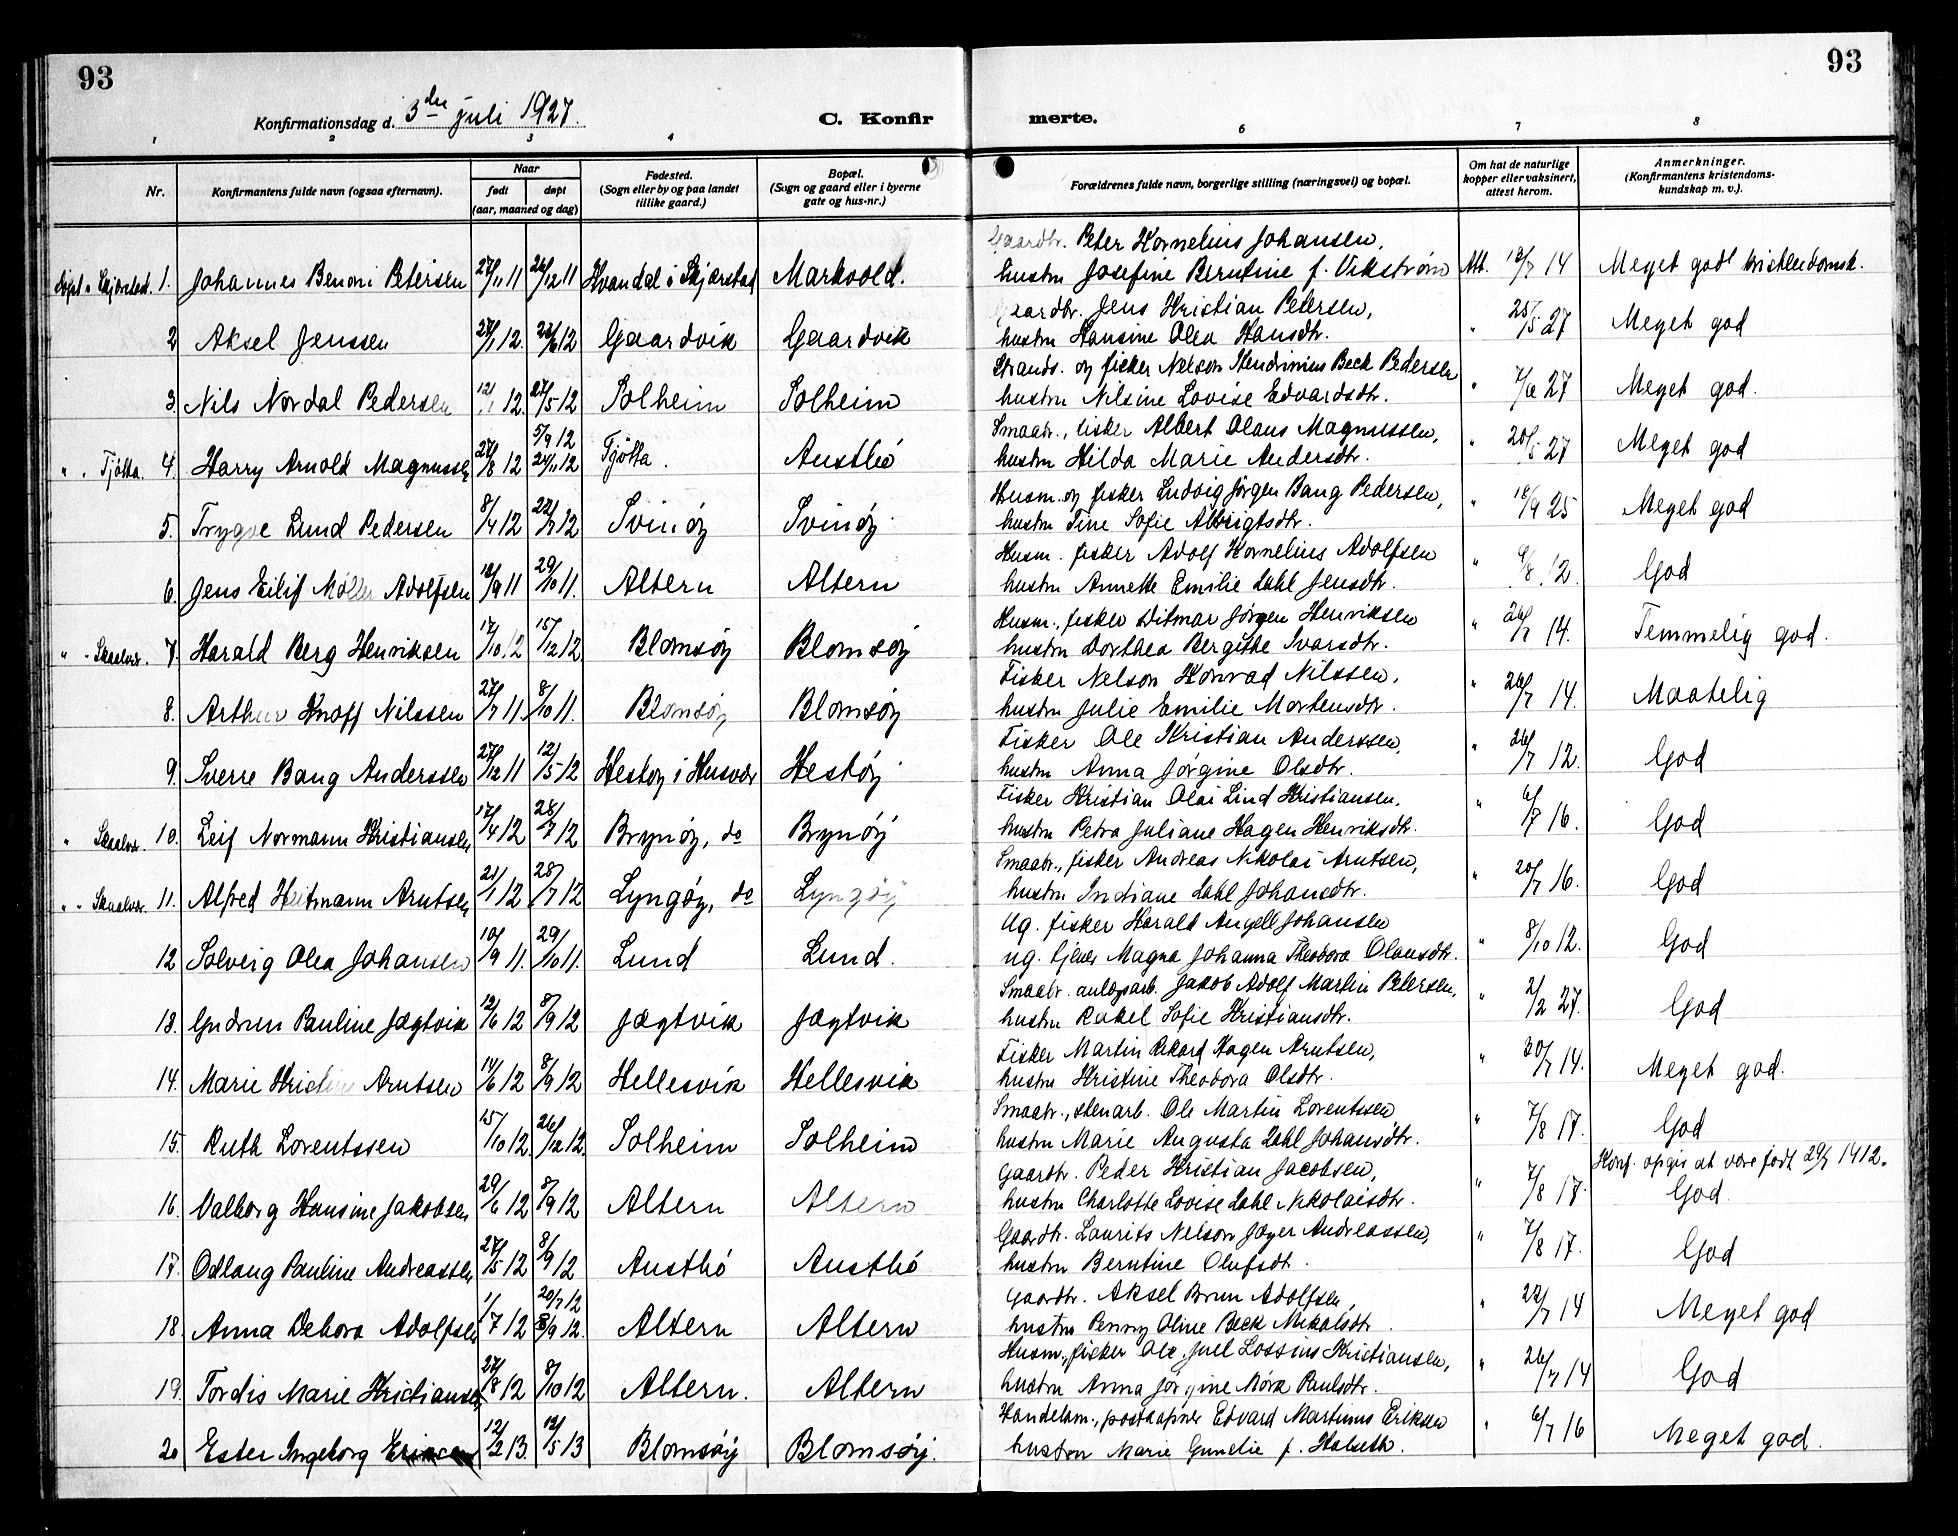 93
93
Konfirmationsdag d. 3die juli 1927.
C. Konfir
merte.
1 2 3 4 6 7 8
Nr.
Konfirmantens fulde navn (ogsaa efternavn).
Naar
født
døpt
(aar, maaned og dag)
Fødested.
(Sogn eller by og paa landet
tillike gaard.)
Bopæl.
(Sogn og gaard eller i byerne
gate og hus-nr.)
Forældrenes fulde navn, borgerlige stilling (næringsvei) og bopæl.
Om hat de naturlige
kopper eller vaksinert,
attest herom.
Anmerkninger.
(Konfirmantens kristendoms-
kundskap m. v.).
Gaardbr. Peter Kornelius Johansen,
Døpt i Skjerstad. 1. Johannes Benoni Petersen 27/11 11 26/12 11 Hvandal i Skjærstad Markvold. hustru Josefine Berntine f. Vikstrøm Att. 18/7 14 Meget god kristendomsk.
Gaardbr. Jens Kristian Petersen,
2 Aksel Jenssen 27/1 12. 23/6 12 Gaardvik Gaardvik hustru Hansine Olea Hansdtr. " 25/5 27 Meget god
Strands. og fisker Nelson Hendrinius Beck Pedersen
3 Nils Nordal Pedersen 12/1 12. 27/5 12 Solheim Solheim hustru Nilsine Lovise Edvardsdtr. " 7/6 27 Meget god.
5/9 12 Smaabr., fisker Albert Olaus Magnussen,
" . Tjøtta. 4. Harry Arnold Magnussen 27/8 12 24/11 12 Tjøtta. Austbø hustru Hilda Marie Andersdtr. " 20/5 27 Meget god
Husm. og fisker Ludvig Jørgen Bang Pedersen,
5. Trygve Lund Pedersen 8/4 12 22/7 12 Svinøy Svinøy hustru Tine Sofie Albrigtsdtr. " 18/9 25 Meget god
Husm. fisker Adolf Kornelius Adolfsen
6. Jens Eilif Møller Adolfsen 18/9 11 29/10 11. Altern Altern hustru Annette Emilie Dahl Jensdtr. " 9/8 12. God
Husm., fisker Ditmar Jørgen Henriksen
" - Skaalvær. 7. Harald Berg Henriksen 17/10 12 15/12 12 Blomsøy Blomsøy hustru Dorthea Bergitte Ivarsdtr. " 26/7 14. Temmelig god.
Fisker Nelson Konrad Nilssen,
8. Arthur Knoff Nilssen 27/7 11. 8/10 11. Blomsøy Blomsøy hustru Julie Emilie Mortensdtr. " 26/7 14. Maatelig
Fisker Ole Kristian Anderssen,
9. Sverre Bang Anderssen 27/12 11 12/5 12 Hestøy i Husvær Hestøy hustru Anna Jørgine Olsdtr. " 26/7 12. God
Fisker Kristian Olai Lind Kristiansen,
" Skaalvær. 10. Leif Normann Kristiansen 17/4 12 28/7 12 Brynøy, do Brynøy hustru Petra Juliane Hagen Henriksdtr. " 6/7 16. God
Smaabr., fisker Andreas Nikolai Arntsen,
" - Skaalvær. 11. Alfred Heitmann Arntsen 21/1 12 28/7 12 Lyngøy, do Lyngøy hustru Indiane Dahl Johansdtr. " 20/7 16. God
Ug. fisker Harald Angell Johansen
12 Solveig Olea Johansen 10/9 11. 29/10 11. Lund Lund. ug. tjener Magna Johanna Theodora Olausdtr. " 8/10 12. God
Smaabr. anlegsarb. Jakob Adolf Martin Petersen,
13. Gudrun Pauline Jægtvik 12/6 12 8/9 12 Jægtvik Jægtvik hustru Rakel Sofie Kristiansdtr. " 2/2 27. God
Fisker Martin Rikard Hagen Arntsen,
14. Marie Kristine Arntsen 14/6 12 8/9 12 Hellesvik Hellesvik hustru Kristine Theodora Olsdtr. " 30/7 14. Meget god.
Smaabr., stenarb. Ole Martin Lorentssen
15. Ruth Lorentssen 15/10 12 26/12 12. Solheim Solheim hustru Marie Augusta Dahl Johansdtr. " 7/8 17. God
Gaardbr. Peder Kristian Jacobsen, Konf. opgis at være født 29/7 1912.
16. Valborg Hansine Jakobsen 29/6 12 8/9 12 Altern Altern hustru Charlotte Lovise Dahl Nikolaisdtr. " 7/8 17. God.
Gaardbr. Laurits Nelson Jæger Andreassen,
17. Odlaug Pauline Andreassen 27/5 12 8/9 12 Austbø Austbø hustru Berntine Olufsdtr. " 7/8 17. God
20/7 12 Gaardbr. Aksel Brun Adolfsen,
18. Anna Debora Adolfsen 1/7 12 8/9 12. Altern Altern hustru Penny Oline Beck Nikolsdtr. " 22/7 14 Meget god
Husm., fisker Ole Juel Lossius Kristiansen,
19. Tordis Marie Kristiansen 27/8 12 8/10 12 Altern. Altern hustru Anna Jørgine Mørk Paulsdtr. " 26/7 14 God
Handelsm., postaapner Edvard Martinus Eriksen
20 Ester Ingeborg Eriksen 12/2 13. 12/5 13 Blomsøy Blomsøy. hustru Marie Gunelie f. Halseth. " 6/7 16 Meget god.